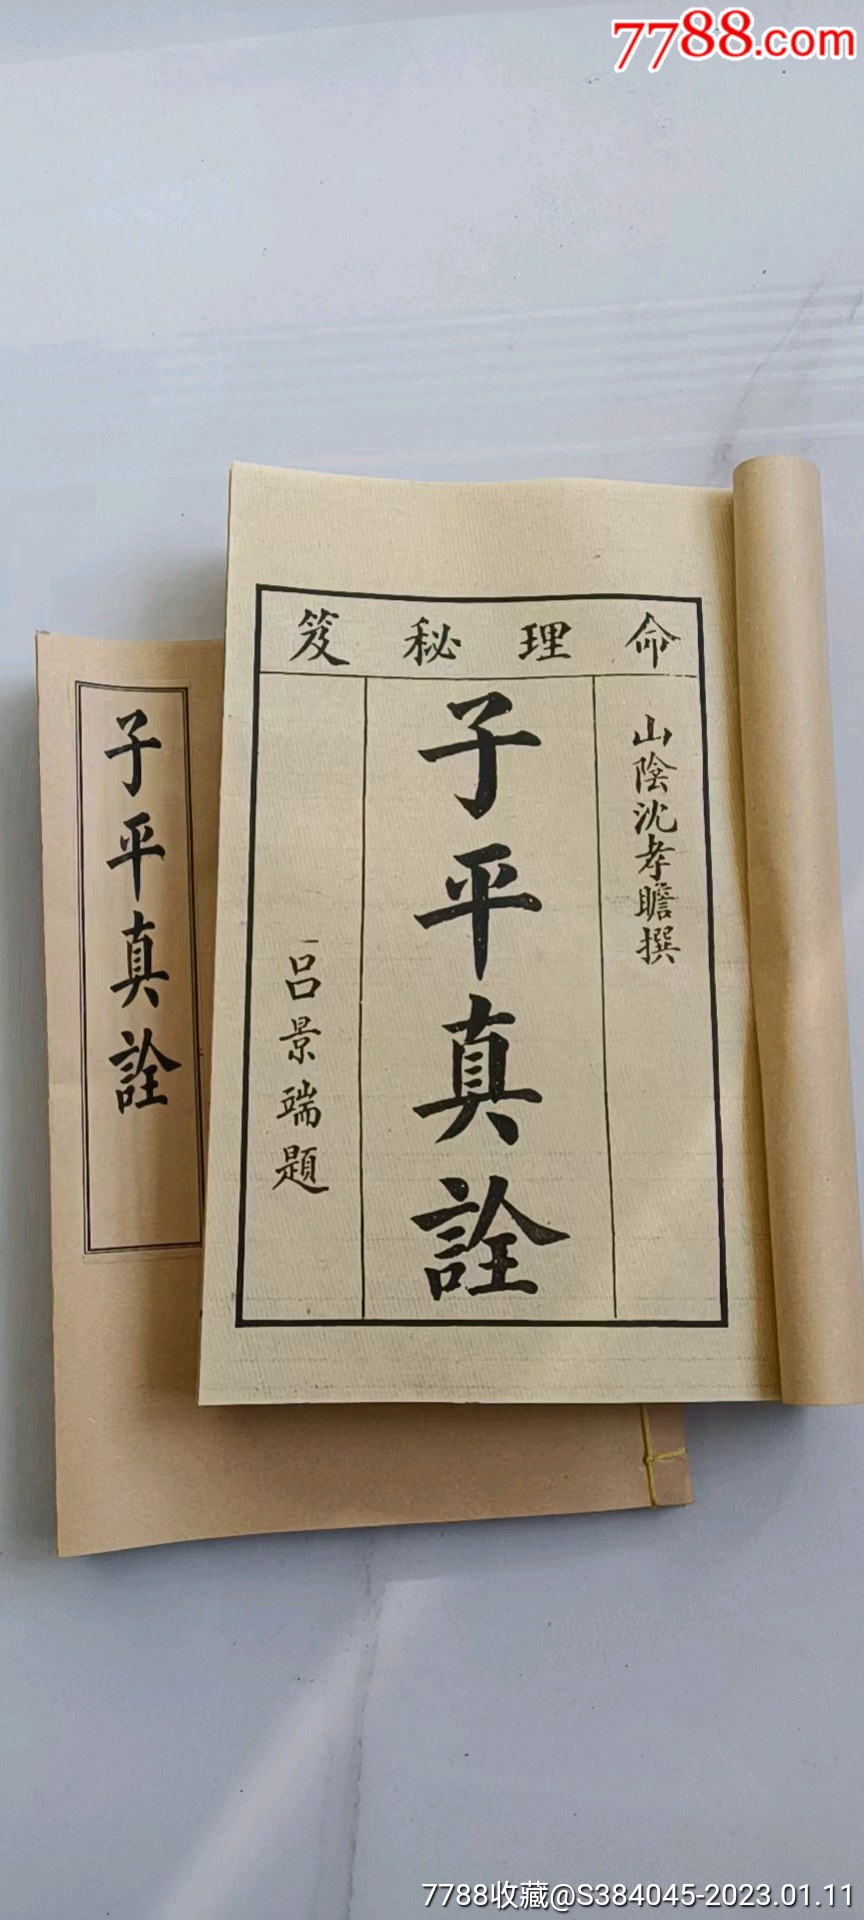 7788.com
命理秘笈
山陰沈孝瞻撰
子平真詮
呂景端題
子平真詮
7788收藏@S384045-2023.01.11